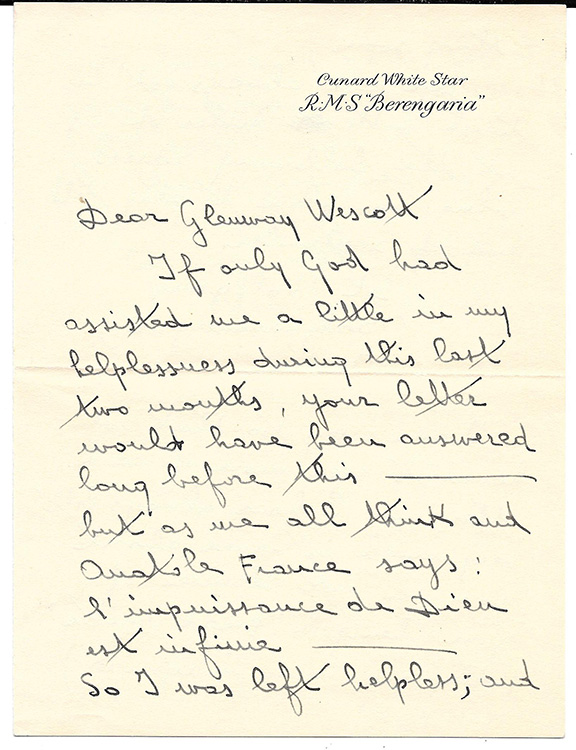 Cunard White Star
R·M·S "Berengaria"
Dear Glenway Wescott
If only God had
assisted me a little in my
helplessness during this last
two months, your letter
would have been answered
long before this ———
but as we all think and
Anatole France says:
l'impuissance de Dieu
est infinie ———
So I was left helpless; and